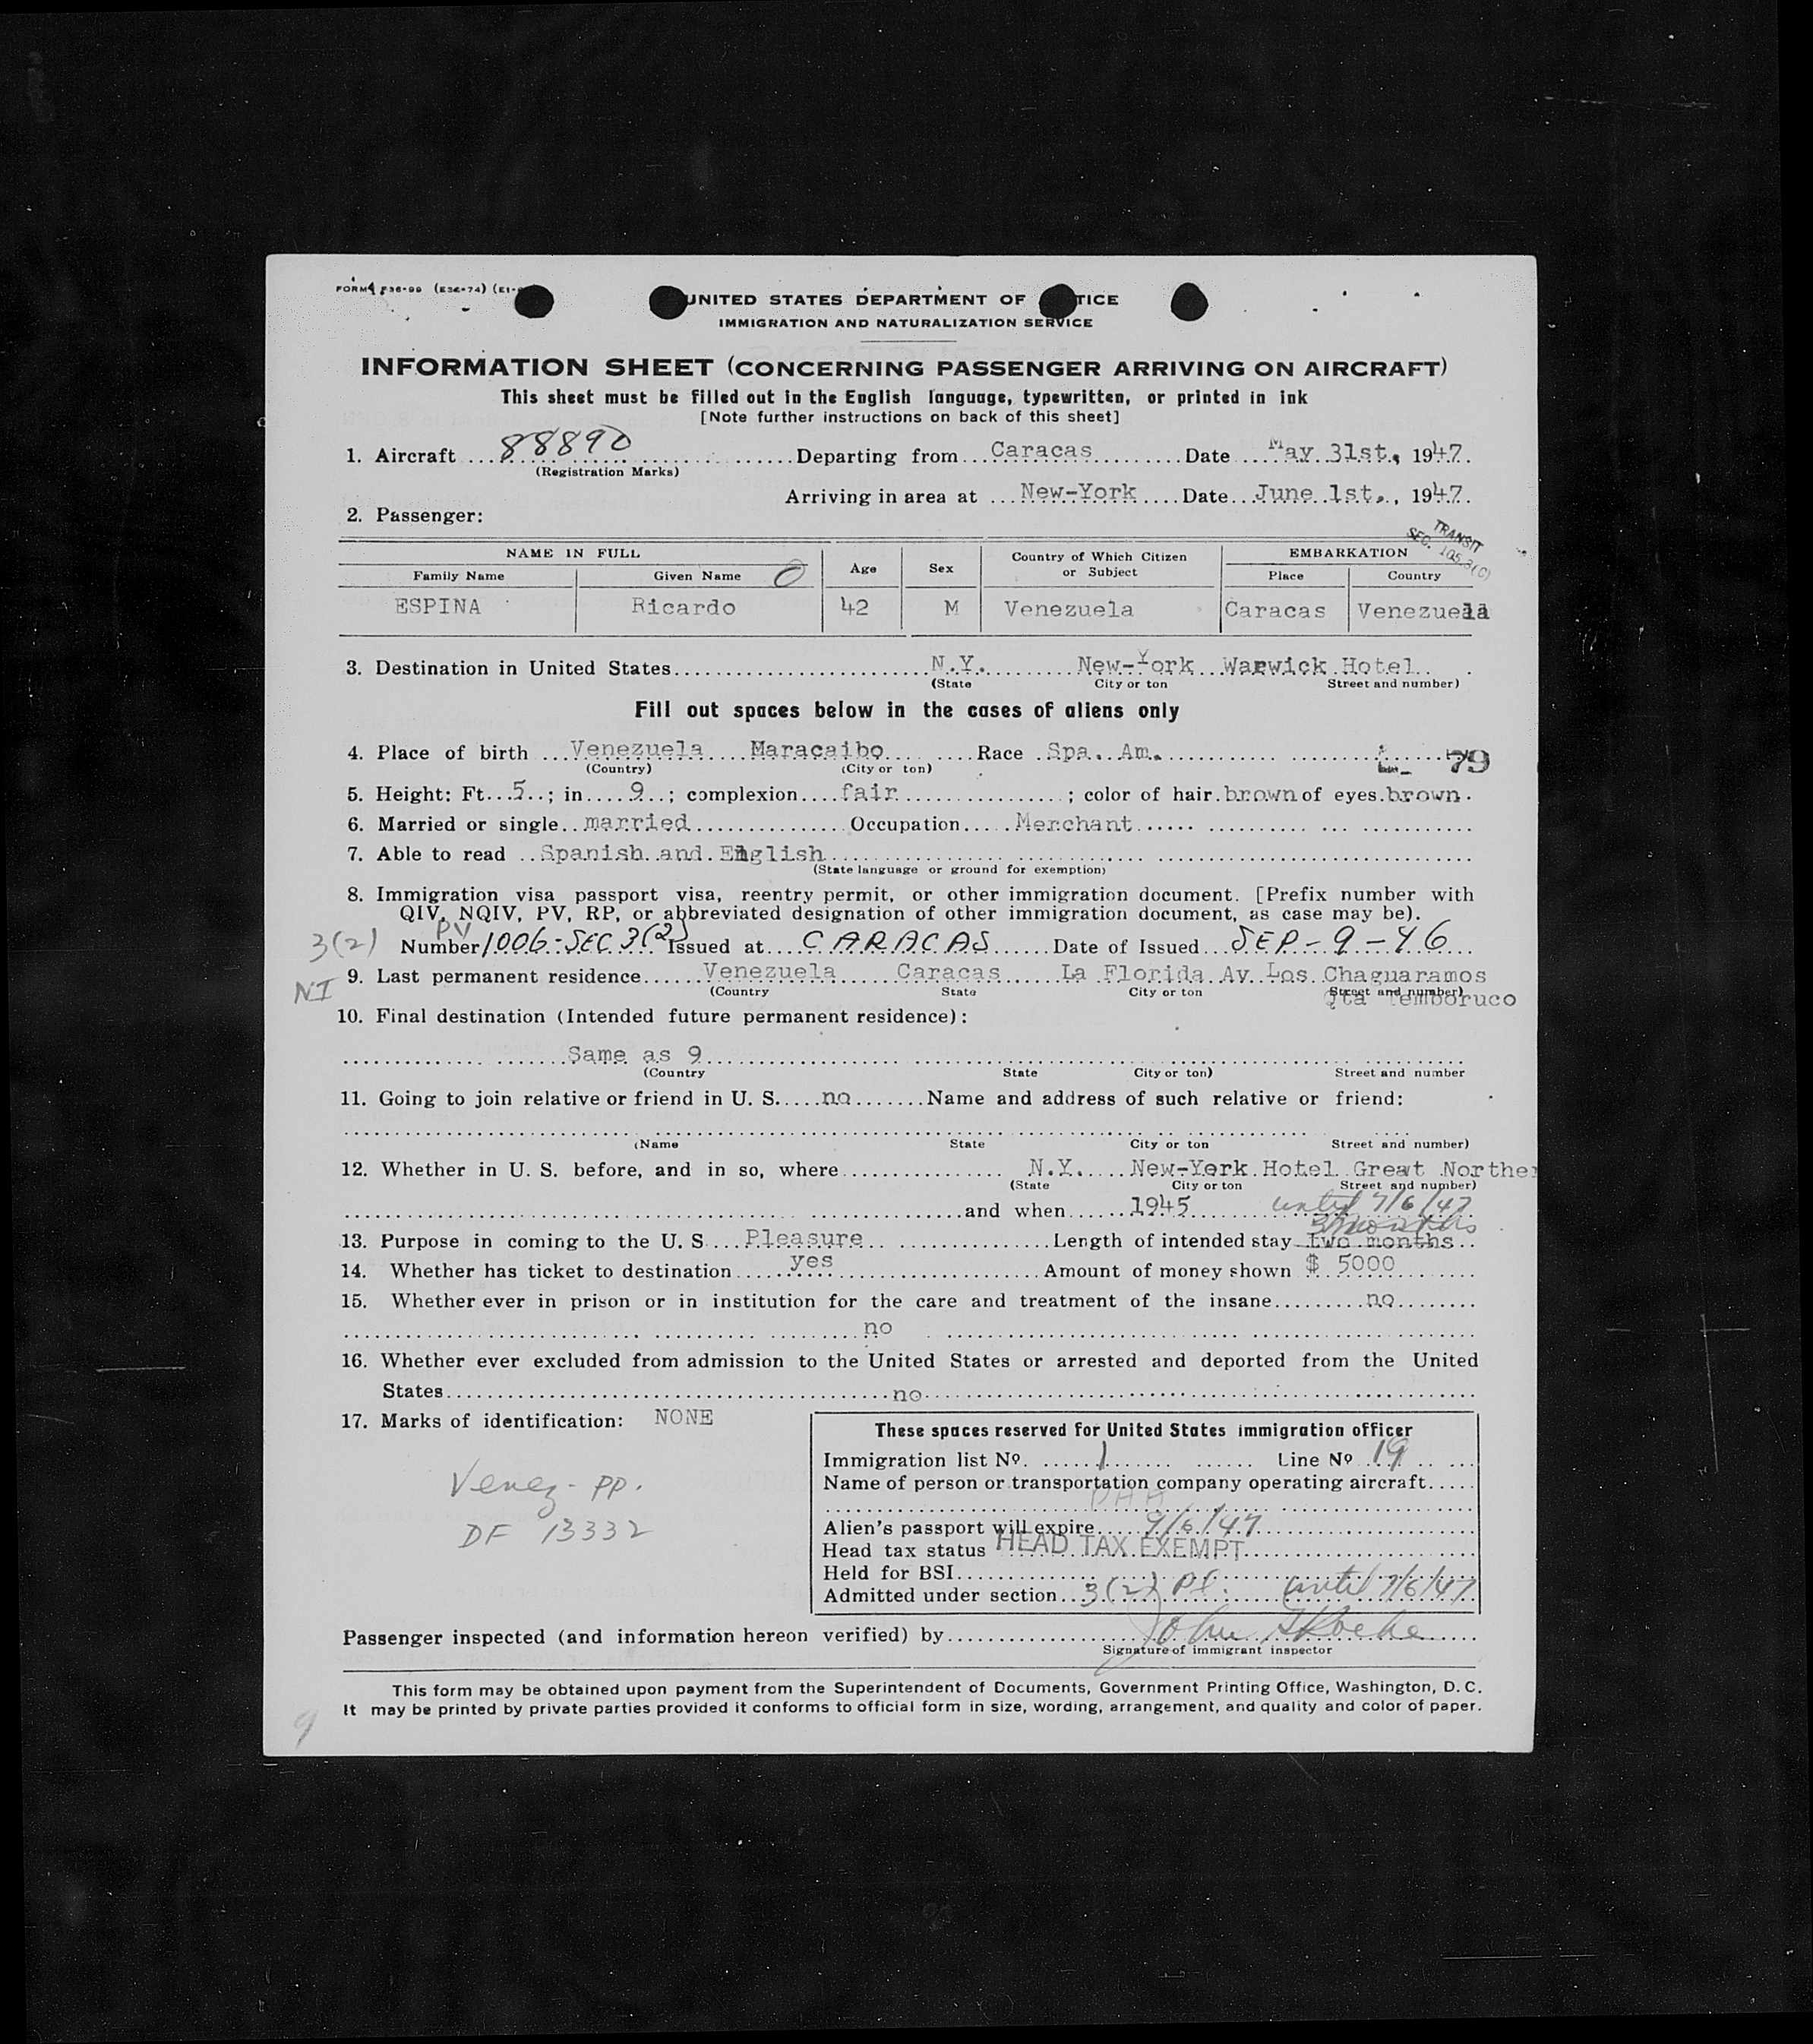 UNITED STATES DEPARTMENT OF
IMMIGRATION AND NATURALIZATION SERVICE
INFORMATION SHEET (CONCERNING PASSENGER ARRIVING ON AIRCRAFT)
This sheet must be filled out in the English language, typewritten, or printed in ink
[Note further instructions on back of this sheet]
1. Aircraft 88890 Departing from Caracas Date May 31st, 1947.
(Registration Marks)
Arriving in area at New-York Date June 1st., 1947.
2. Passenger:
TRANSIT
SEC. 105.3(C)
NAME IN FULL Age Sex Country of Which Citizen or Subject EMBARKATION
Family Name Given Name Place Country
ESPINA Ricardo 42 M Venezuela Caracas Venezuela
3. Destination in United States N.Y. New-York Warwick Hotel
(State City or ton Street and number)
Fill out spaces below in the cases of aliens only
4. Place of birth Venezuela Maracaibo Race Spa. Am. 79
(Country) (City or ton)
5. Height: Ft. 5 ; in 9 ; complexion fair ; color of hair brown of eyes brown.
6. Married or single married Occupation Merchant
7. Able to read Spanish and English
(State language or ground for exemption)
8. Immigration visa passport visa, reentry permit, or other immigration document. [Prefix number with
QIV, NQIV, PV, RP, or abbreviated designation of other immigration document, as case may be).
PV
3(2) Number 1006-SEC 3(2) Issued at CARACAS Date of Issued SEP-9-46
9. Last permanent residence Venezuela Caracas La Florida Av. Los Chaguaramos
NI (Country State City or ton Street and number)
Qta Temboruco
10. Final destination (Intended future permanent residence):
Same as 9
(Country State City or ton) Street and number
11. Going to join relative or friend in U. S. no Name and address of such relative or friend:
(Name State City or ton Street and number)
12. Whether in U. S. before, and in so, where N.Y. New-York Hotel Great Norther
(State City or ton Street and number)
and when 1945 until 9/6/47
3 months
13. Purpose in coming to the U. S Pleasure Length of intended stay two months
14. Whether has ticket to destination yes Amount of money shown $ 5000
15. Whether ever in prison or in institution for the care and treatment of the insane no
no
16. Whether ever excluded from admission to the United States or arrested and deported from the United
States no
17. Marks of identification: NONE
Venez- PP.
DF 13332
These spaces reserved for United States immigration officer
Immigration list No. 1 Line No 19
Name of person or transportation company operating aircraft
PAA
Alien's passport will expire 9/6/47
Head tax status HEAD TAX EXEMPT
Held for BSI
Admitted under section 3(2) Pl. until 9/6/47
Passenger inspected (and information hereon verified) by John
Signature of immigrant inspector
This form may be obtained upon payment from the Superintendent of Documents, Government Printing Office, Washington, D. C.
It may be printed by private parties provided it conforms to official form in size, wording, arrangement, and quality and color of paper.
9